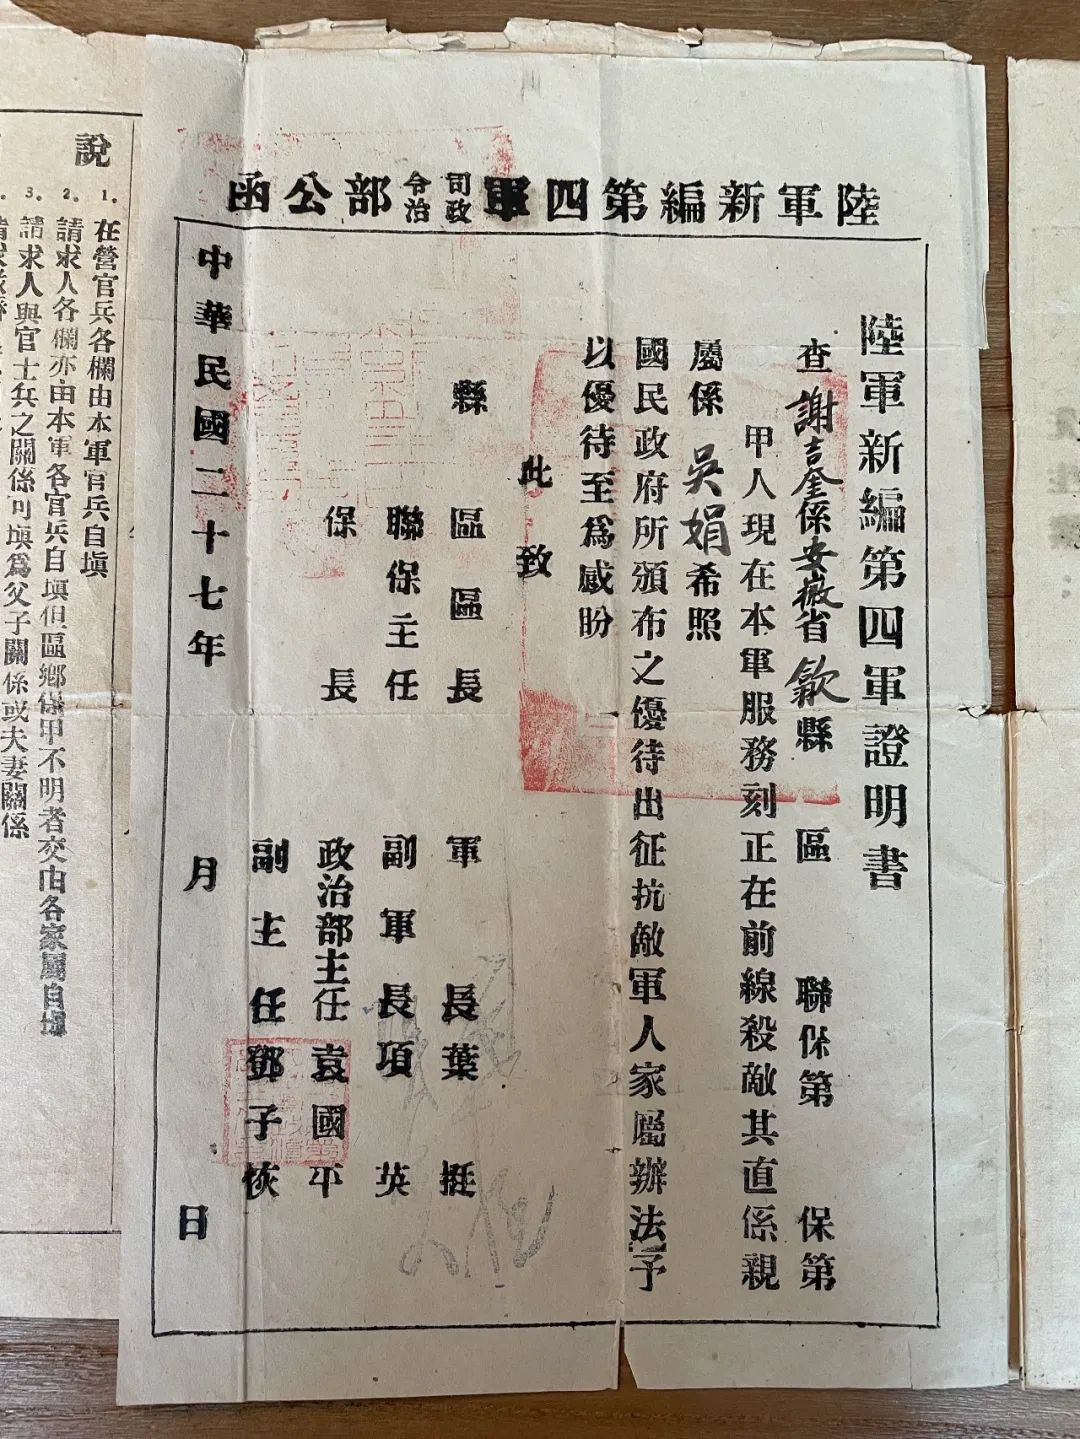 陸軍新編第四軍司令政治部公函
陸軍新編第四軍證明書
查謝吉奎係安徽省歙縣 區 聯保第 保第
甲人現在本軍服務刻正在前線殺敵其直係親
屬係吳娟希照
國民政府所頒布之優待出征抗敵軍人家屬辦法予
以優待至爲感盼
此致
縣 區區長
聯保主任
保長
軍長葉挺
副軍長項英
政治部主任袁國平
副主任鄧子恢
中華民國二十七年 月 日
說
1. 在營官兵各欄由本軍官兵自塡
2. 請求人各欄亦由本軍各官兵自塡但區鄉保甲不明者交由各家屬自塡
3. 請求人與官士兵之關係可塡爲父子關係或夫妻關係